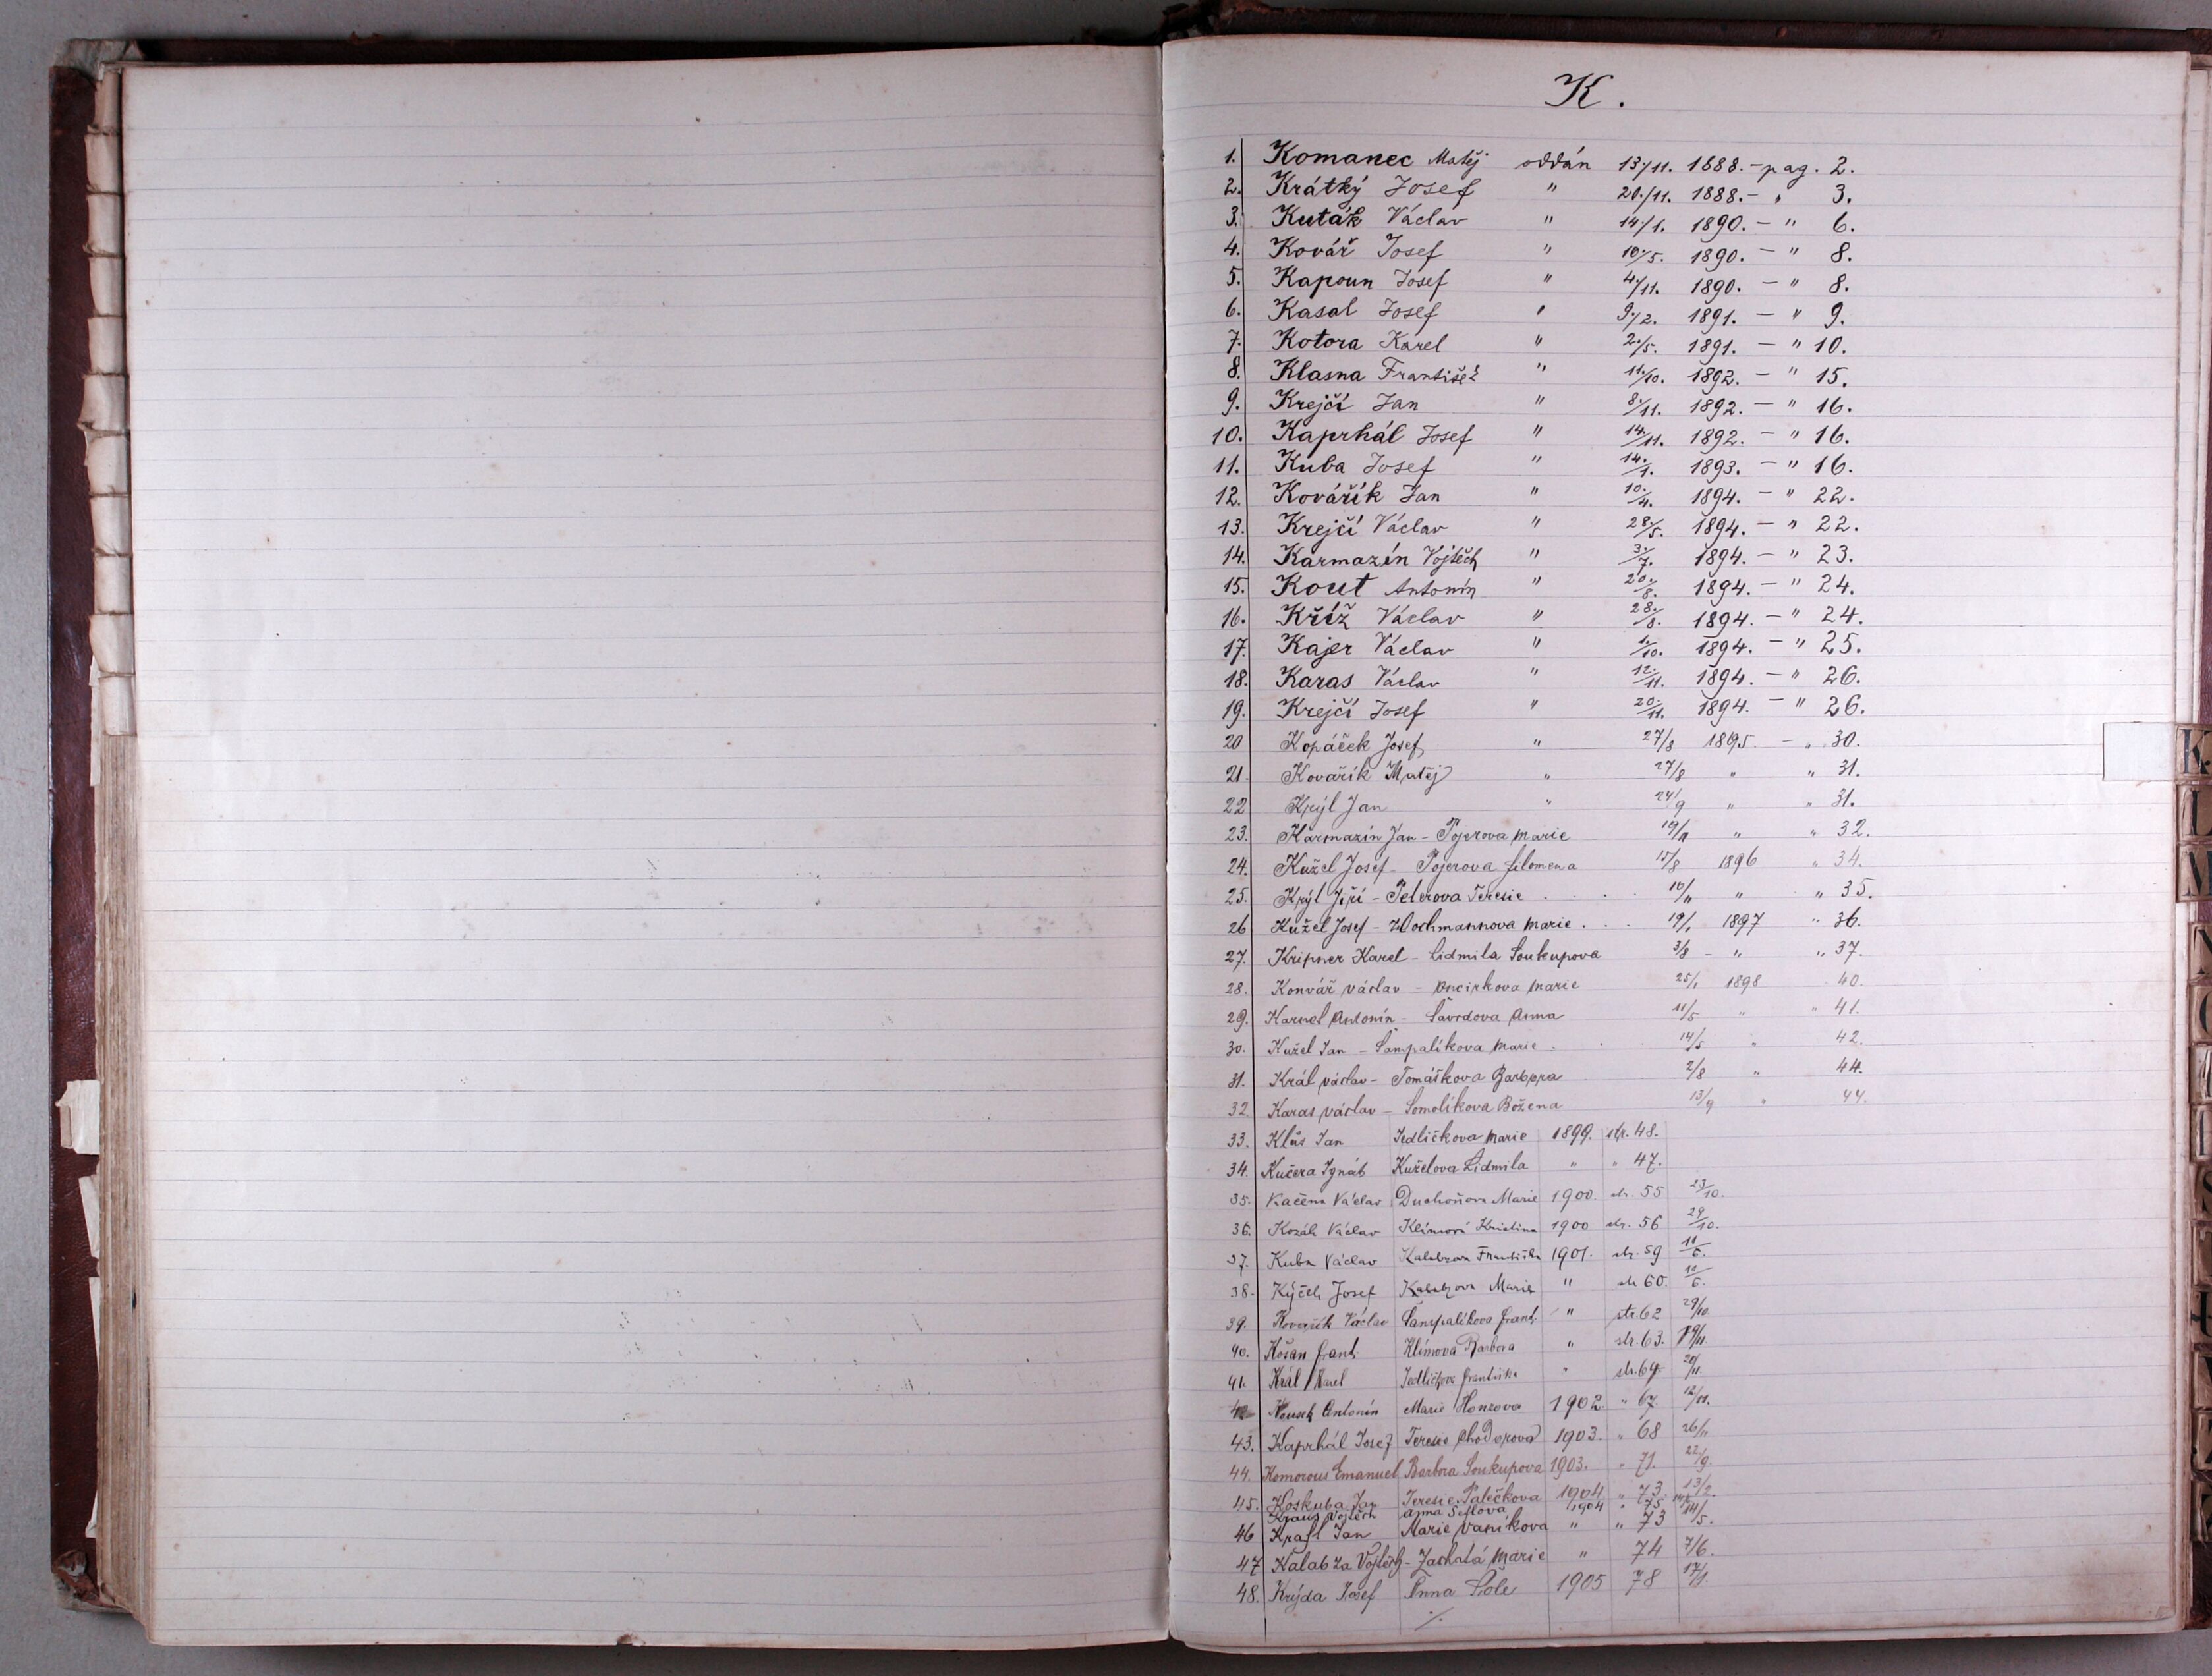 K.
1. Komanec Matěj oddán 13./11. 1888. – pag. 2.
2. Krátký Josef " 20./11. 1888. – " 3.
3. Kuták Václav " 14./1. 1890. – " 6.
4. Kovář Josef " 10./5. 1890. – " 8.
5. Kapoun Josef " 4./11. 1890. – " 8.
6. Kasal Josef " 9./2. 1891. – " 9.
7. Kotora Karel " 2./5. 1891. – " 10.
8. Klasna František " 11./10. 1892. – " 15.
9. Krejčí Jan " 8./11. 1892. – " 16.
10. Kaprhál Josef " 14./11. 1892. – " 16.
11. Kuba Josef " 14./1. 1893. – " 16.
12. Kovářík Jan " 10./4. 1894. – " 22.
13. Krejčí Václav " 28./5. 1894. – " 22.
14. Karmazín Vojtěch " 3./7. 1894. – " 23.
15. Kout Antonín " 20./8. 1894. – " 24.
16. Kříž Václav " 28./8. 1894. – " 24.
17. Kajer Václav " 1./10. 1894. – " 25.
18. Karas Václav " 12./11. 1894. – " 26.
19. Krejčí Josef " 20./11. 1894. – " 26.
20 Kopáček Josef " 27/8 1895. – " 30.
21. Kovařík Matěj " 27/8 " " 31.
22 Krýl Jan " 24/9 " " 31.
23. Karmazin Jan – Pojerova Marie 19/11 " " 32.
24. Kužel Josef – Pojerova filomena 15/8 1896 " 34.
25. Krýl Jiří – Peterova Teresie 10/11 " " 35.
26 Kužel Josef – Wochmannova Marie 19/1 1897 " 36.
27. Kripner Karel – Lidmila Soukupova 3/8 – " " 37.
28. Konvář Václav – Marie 25/1 1898 40.
29. Karnel Antonín – Anna 11/5 " " 41.
30. Kužel Jan – Šampalíkova Marie 14/5 " 42.
31. Král Václav – Tomáškova Barbora 2/8 " 44.
32 Karas Václav – Somolíkova Božena 13/9 " 44.
33. Klůs Jan Jedličkova Marie 1899. str. 48.
34. Kučera Ignát Kuželova Lidmila " " 47.
35. Václav Duchoňova Marie 1900. str. 55 23/10.
36. Kozák Václav Klímová Kristina 1900 str. 56 29/10.
37. Kuba Václav Františka 1901. str. 59 11/6.
38. Josef Marie " str 60. 11/6.
39. Kovařík Václav Šampalíkova frant. " str. 62 29/10.
40. frant. Klímova Barbora " str. 63. 19/11.
41. Král Karel Františka " str. 64. 20/11.
42 Antonín Marie Honzova 1902. " 67. 12/11.
43. Kaprhál Josef Teresie Chodorova 1903. " 68 26/11
44. Komorous Emanuel Barbora Soukupova 1903. " 71. 22/9.
45. Koskuba Jan Teresie Palečkova 1904. " 73 13/2.
Kraus Vojtěch Anna 1904 " 75
46 Krafl Jan Marie Vaníkova " " 73 14/5.
47 Kalabza Vojtěch – Zachatá Marie " 74 7/6.
48. Krýda Josef Anna 1905 78 17/1.
./.
K
L
M
N